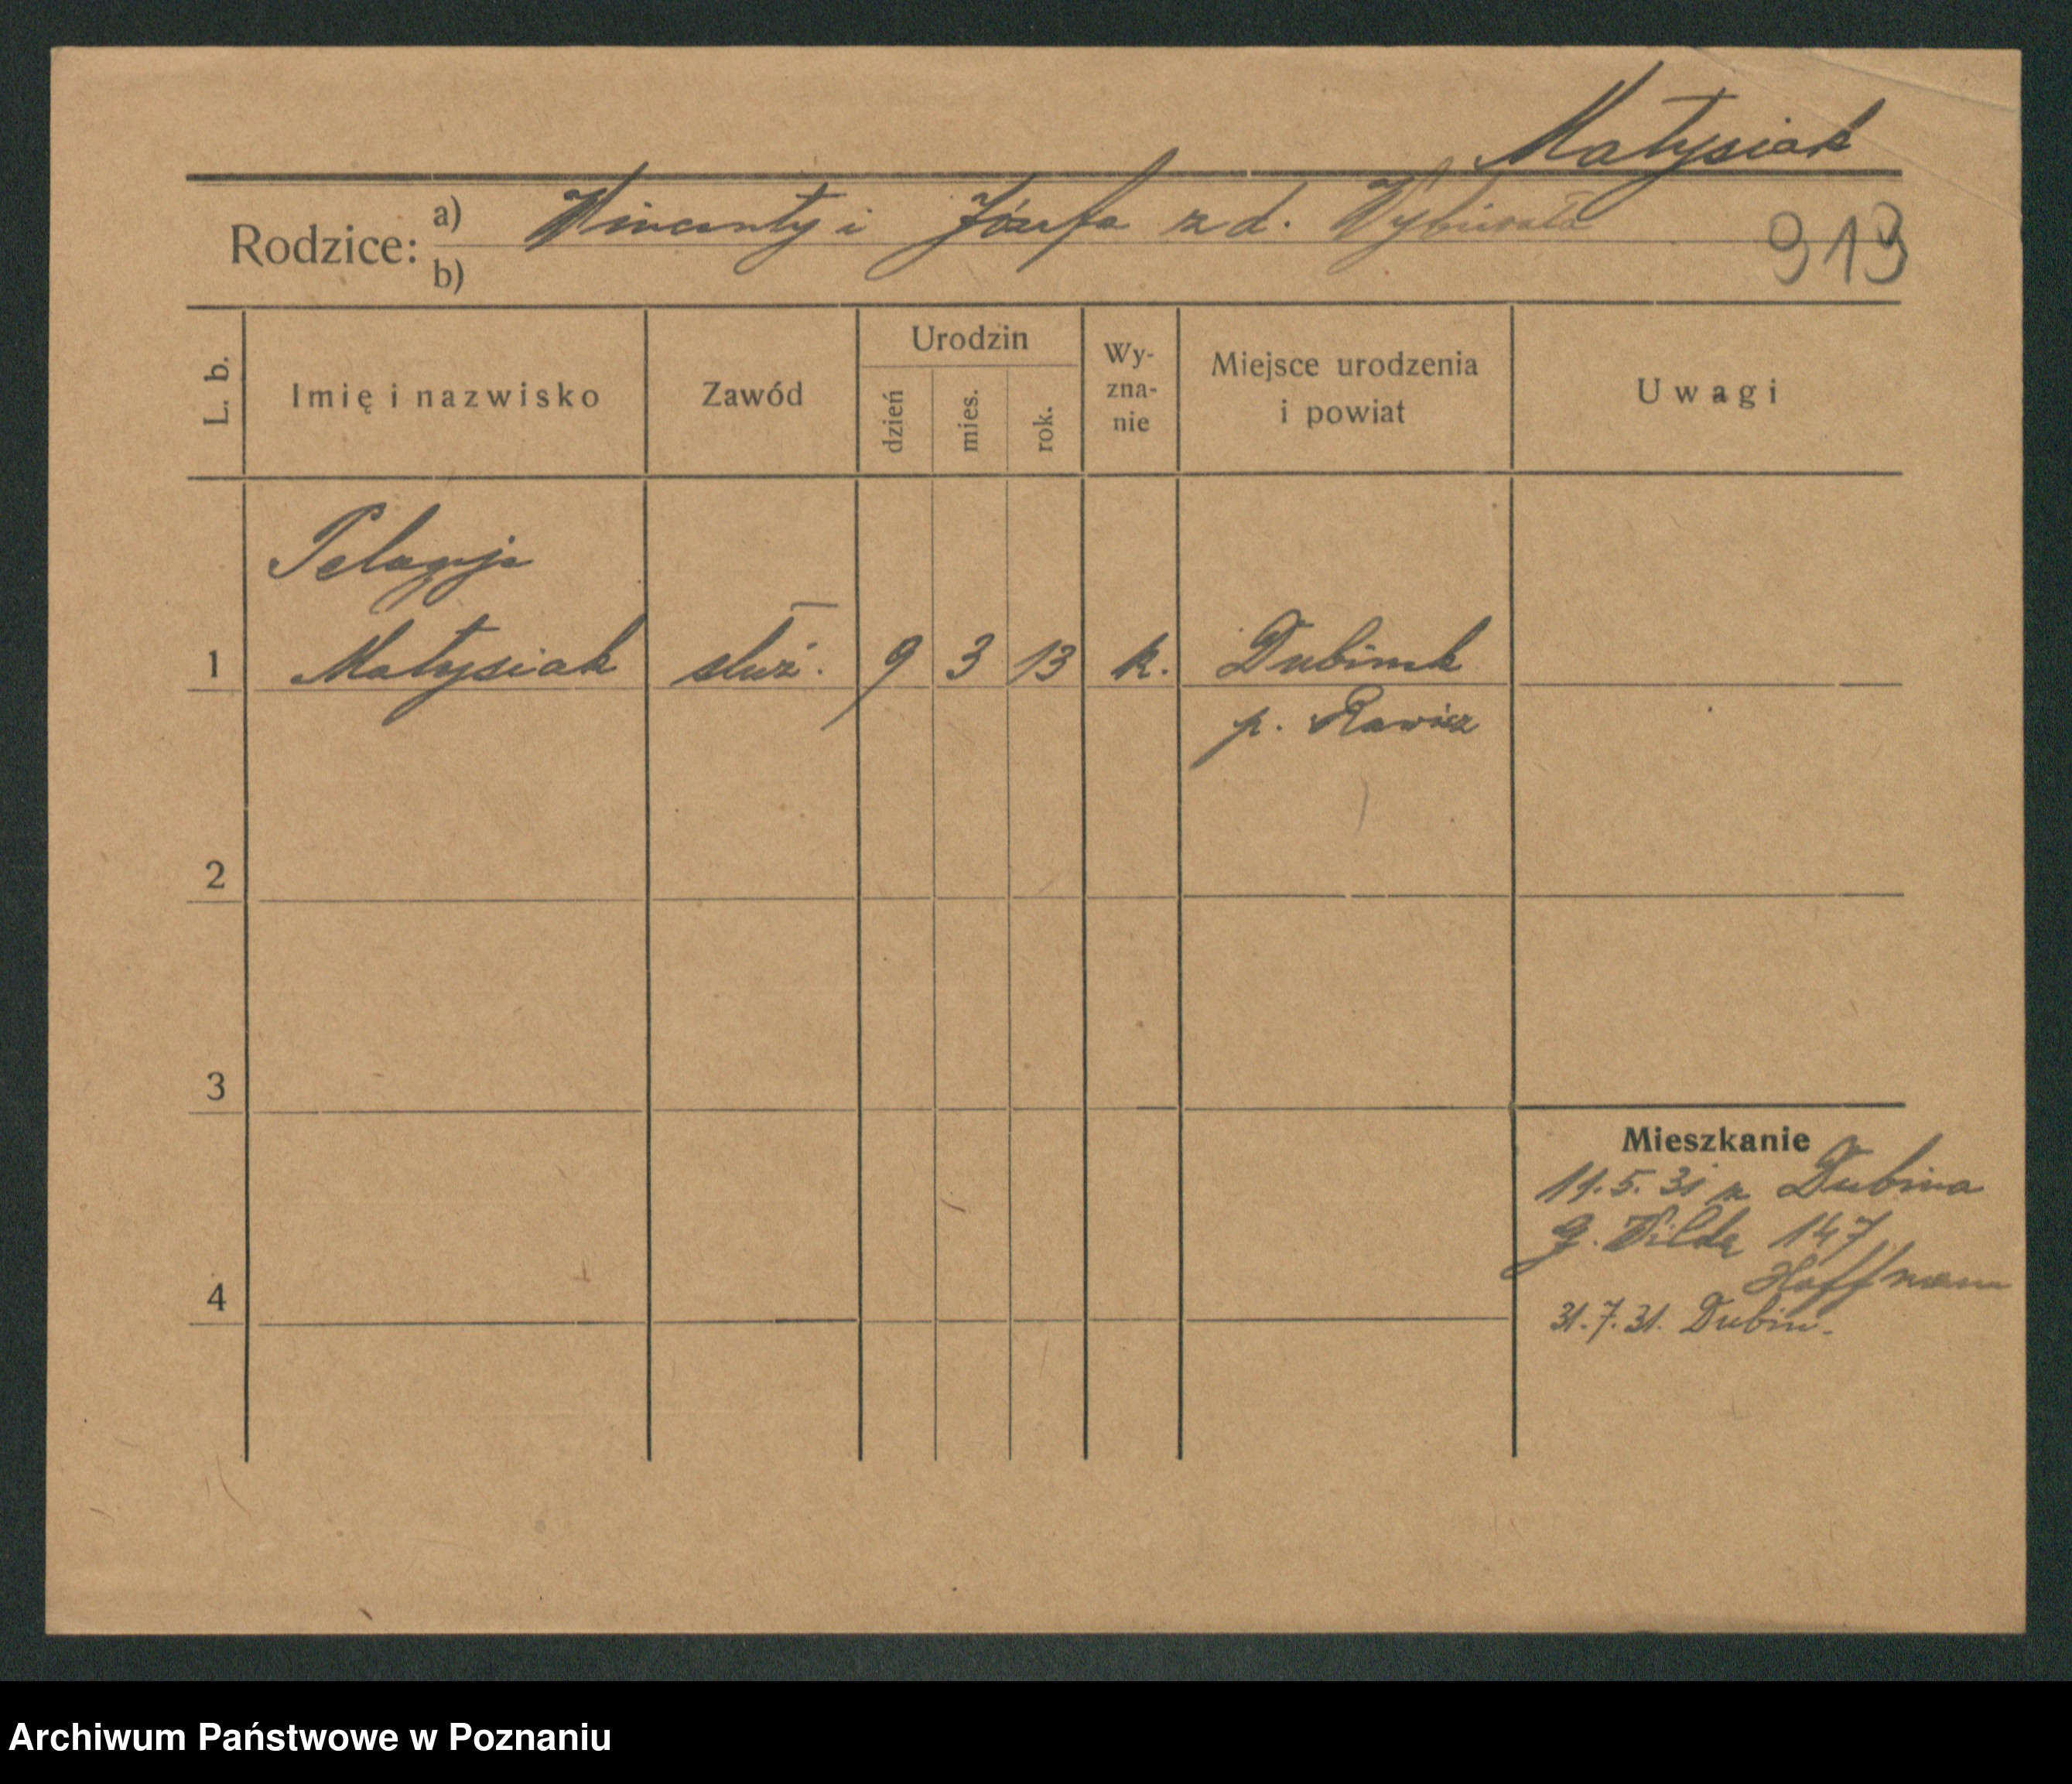 Matysiak
Rodzice: a) Wincenty i Józefa z d.
b)
913
L. b.
Imię i nazwisko
Zawód
Urodzin
dzień
mies.
rok.
Wy-
zna-
nie
Miejsce urodzenia
i powiat
Uwagi
Pelagja
1 Matysiak służ. 9 3 13 k. Dubinek
p. Rawicz
2
3
Mieszkanie
11.5.31 z Dubina
G. Wilda 147
Hoffmann
4
31.7.31. Dubin.
Archiwum Państwowe w Poznaniu